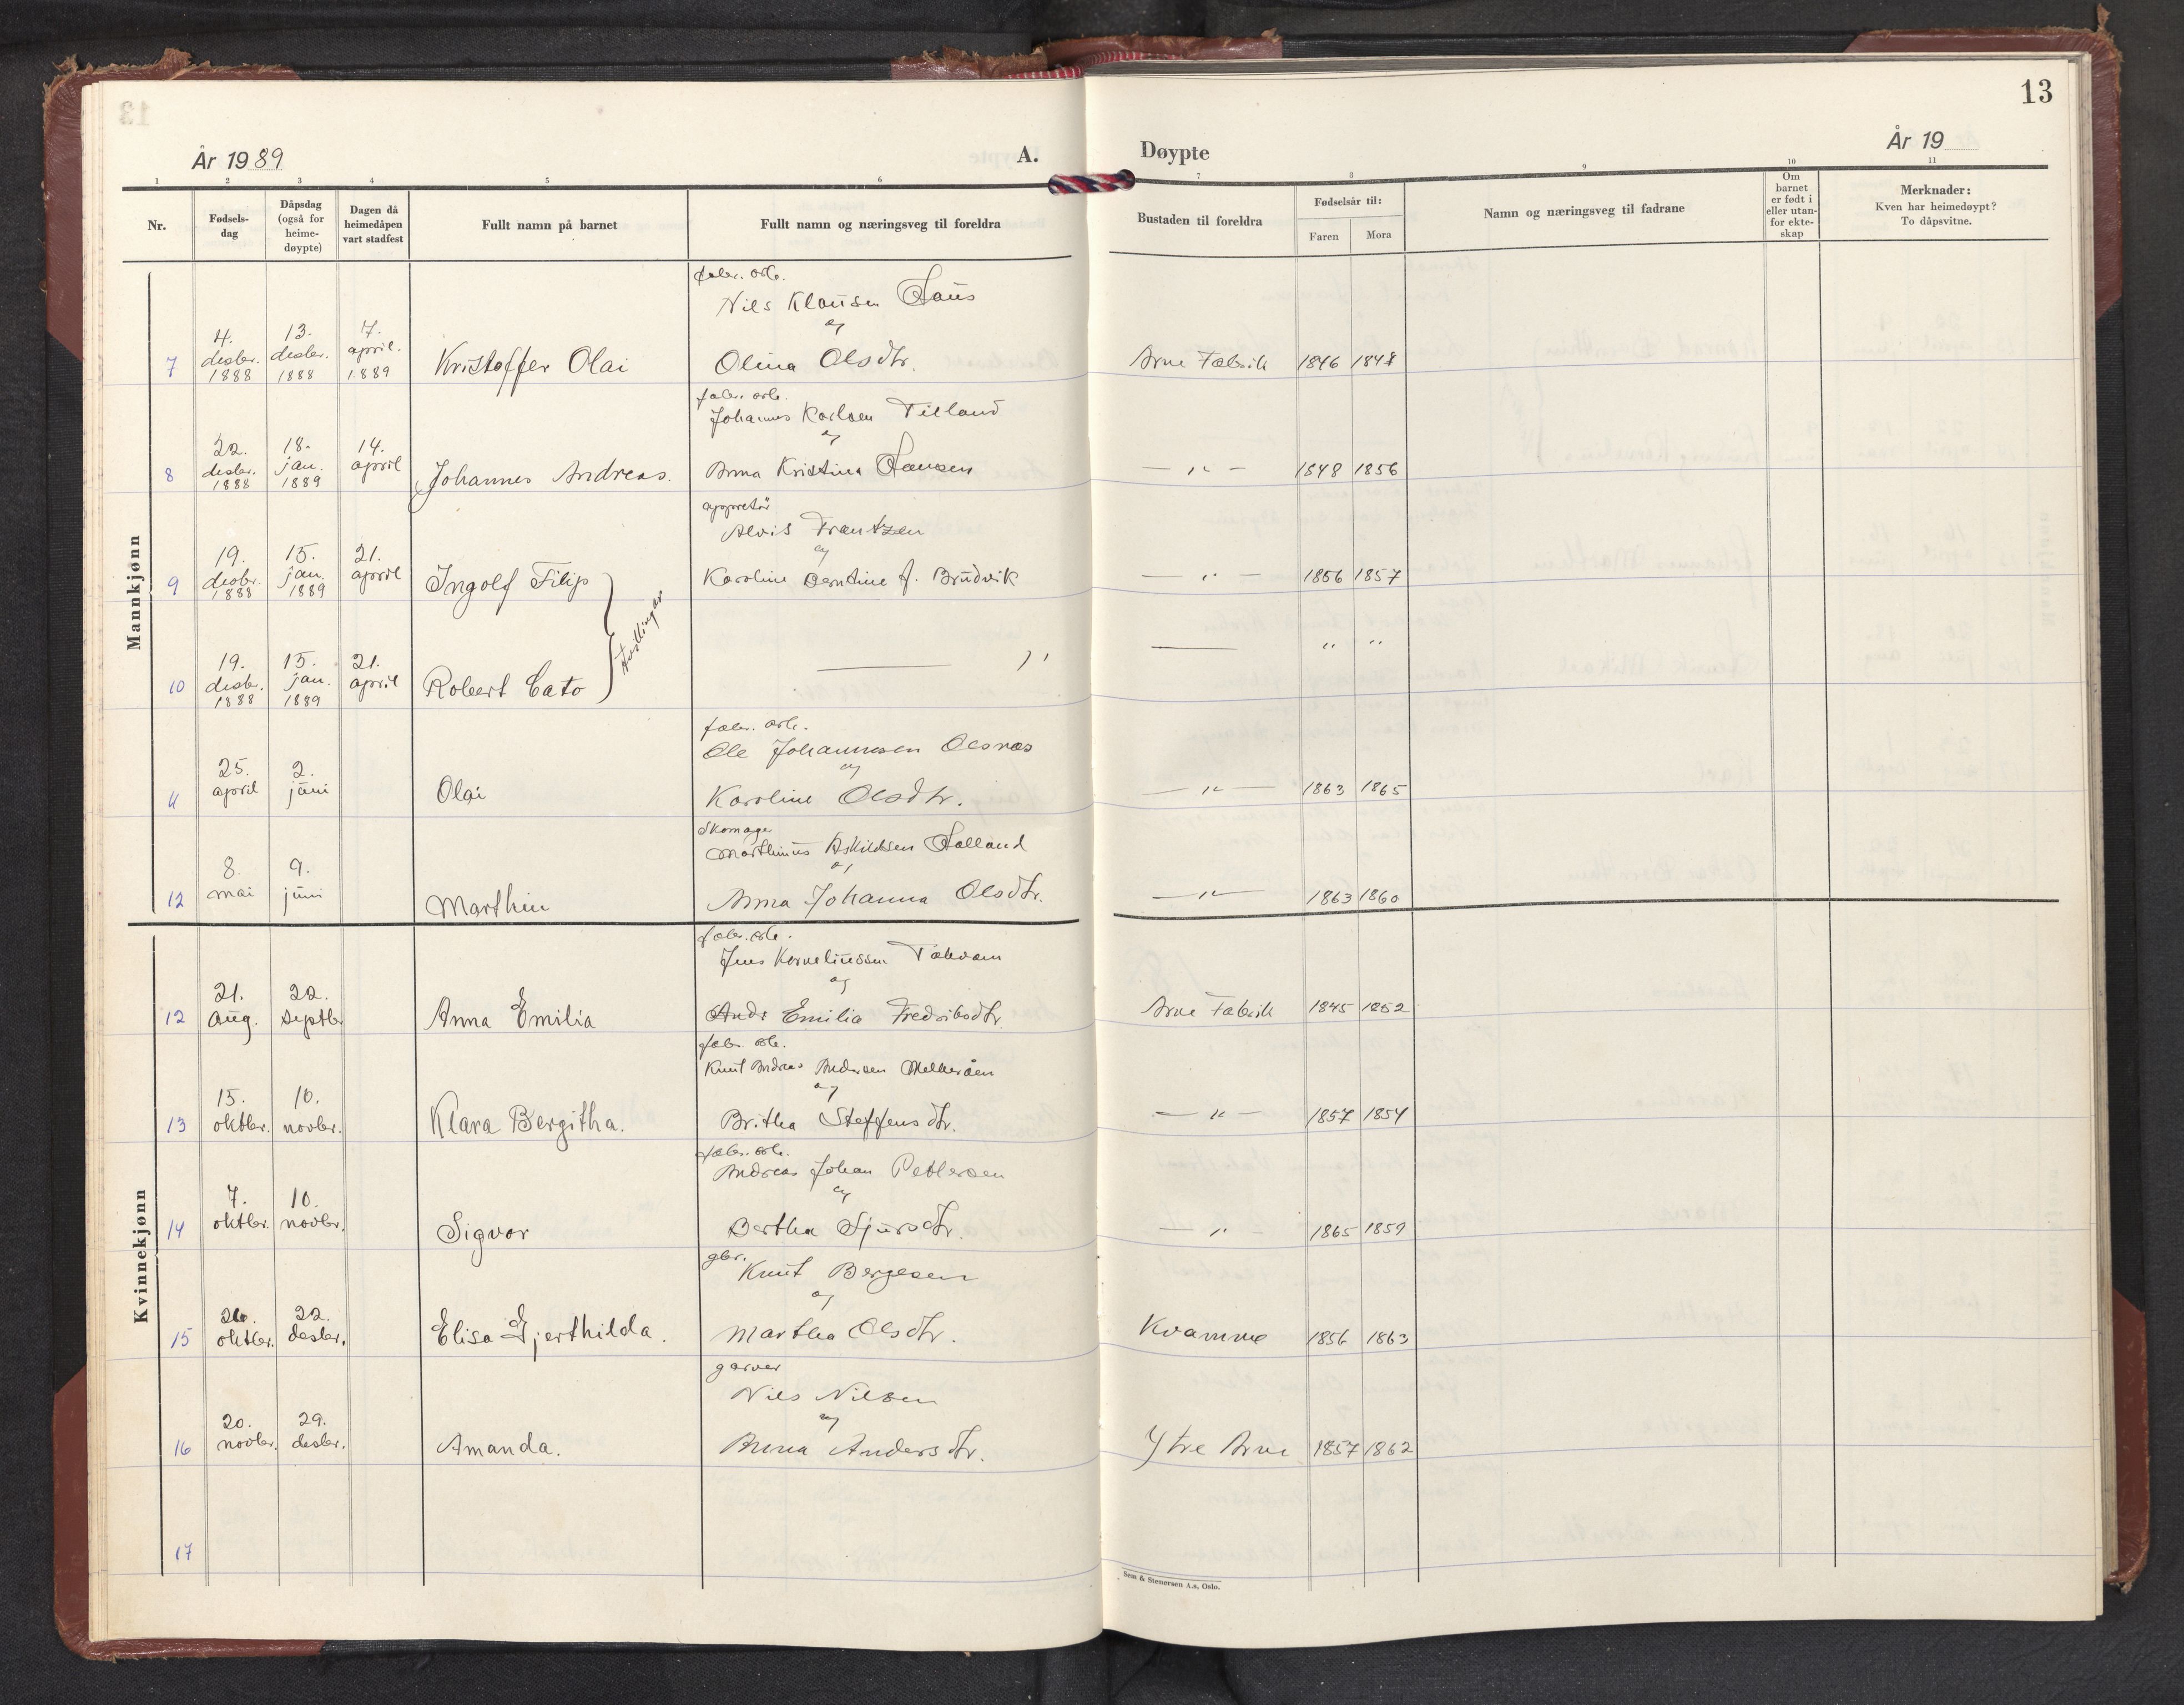 13
År 1989
A.
Døypte
År 19
1 2 3 4 5 6 7 8 9 10 11
Nr.
Fødsels-
dag
Dåpsdag
(også for
heime-
døypte)
Dagen då
heimedåpen
vart stadfest
Fullt namn på barnet
Fullt namn og næringsveg til foreldra
Bustaden til foreldra
Fødselsår til:
Faren Mora
Namn og næringsveg til fadrane
Om
barnet
er født i
eller utan-
for ekte-
skap
Merknader:
Kven har heimedøypt?
To dåpsvitne.
Mannkjønn
fabr. arb.
Nils Klausen
og
7 4. desbr. 1888 13. desbr. 1888 7. april. 1889 Kristoffer Olai Olina Olsdtr. Arne Fabrik 1846 1848
fabr. arb.
Johannes Karlsen Tilland
og
8 22. desbr. 1888 18. jan. 1889 14. april Johannes Andreas. Anna Kristina Hansen — " — 1848 1856
appretør
Alvis Frantzen
og
9 19. desbr. 1888 15. jan. 1889 21. april Ingolf Filip Karoline Berntine f. Brudvik — " — 1856 1857
Tvillingar
10 19. desbr. 1888 15. jan. 1889 21. april Robert Cato — " — " "
fabr. arb.
Ole Johannesen Olsnes
og
11 25. april 2. juni Olai Karoline Olsdtr. — " — 1863 1865
Skomage
Marthinus Askildsen Halland
og
12 8. mai 9. juni Marthin Anna Johanna Olsdtr. — " — 1863 1860
Kvinnekjønn
fabr. arb.
Jens Korneliussen Takvam
og
12 21. aug. 22. septbr Anna Emilia Emilia Fredriksdtr. Arne Fabrik 1845 1852
fabr. arb.
Knut Andreas Andersen Melkeråen
og
13 15. oktbr. 10. novbr. Klara Bergitha. Britha Steffensdtr. — " — 1857 1854
fabr. arb.
Andreas Johan Pettersen
og
14 7. oktbr. 10. novbr. Sigvor Bertha Sjursdtr. — " — 1865 1859
gbr.
Knut Bergesen
og
15 26. oktbr. 22. desbr. Elisa Gjerthilda. Martha Olsdtr. Kvamme 1856 1863
garver
Nils Nilsen
og
16 20. novbr. 29. desbr. Amanda. Anna Andersdtr. Ytre Arne 1857 1862
17
Sem & Stenersen A.s, Oslo.